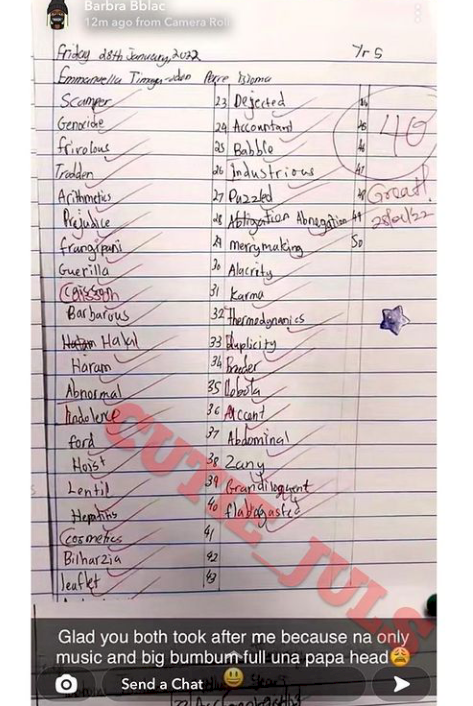 Barbra Bblac
12m ago from Camera Roll
Friday 28th January, 2022
Yr 5
Emmanuella
Scamper
23 Dejected
Genocide
24 Accountant
frivolous
25 Babble
40
Trodden
26 Industrious
47
Arithmetics
27 Puzzled
48
Great!
Prejudice
28 Abtigation Abnegation 49
28/01/22
frangipani
29 merrymaking
50
Guerilla
30 Alacrity
Caisson
31 Karma
Barbarous
32 thermodynamics
Halal
33 Duplicity
Haram
34
Abnormal
35 Lobola
Indolence
36 Accent
ford
37 Abdominal
Hoist
38 Zany
Lentil
39 Grandiloquent
Hepatitis
40 flabagasted
Cosmetics
41
Bilharzia
42
leaflet
43
CUTIE_JULS
Glad you both took after me because na only
music and big bumbum full una papa head😩
😃
Send a Chat